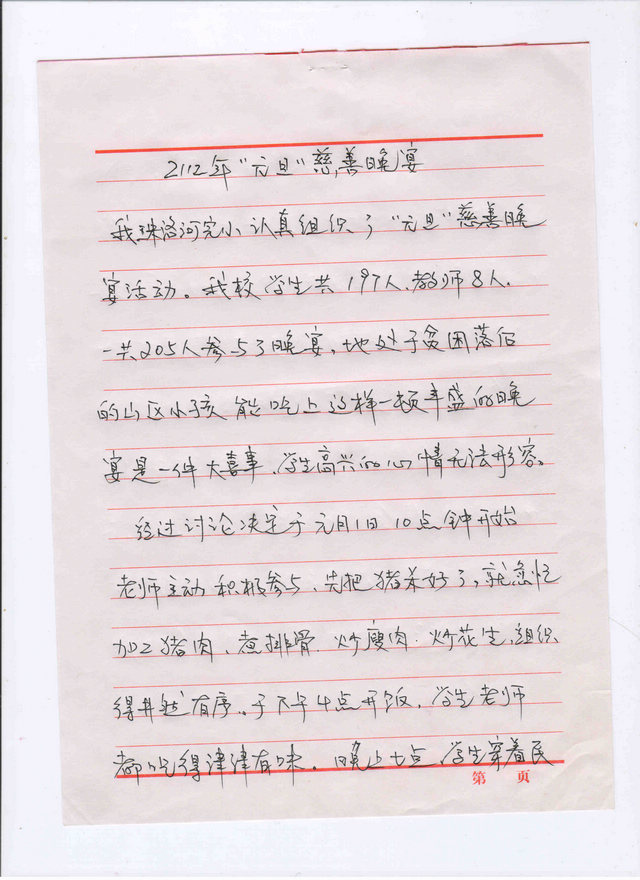 2112年“元旦”慈善晚宴
我珠洛河完小认真组织了“元旦”慈善晚
宴活动。我校学生共197人、教师8人.
一共205人参与了晚宴,地处于贫困落后
的山区小孩能吃上这样一顿丰盛的晚
宴是一件大喜事、学生高兴的心情无法形容。
经过讨论决定于元月1日10点钟开始
老师主动积极参与、先把猪杀好了,就急忙
加工猪肉、煮排骨.炒瘦肉.炒花生、组织
得井然有序.于下午4点开饭,学生老师
都吃得津津有味.晚上七点学生穿着民
第 页